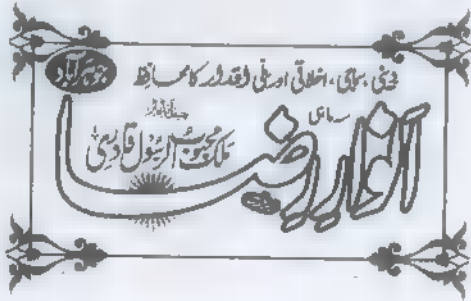 جوہر آباد
دینی، سماجی، اخلاقی اور ملی اقدار کا محافظ
سہ ماہی
انوار رضا
چیف ایڈیٹر
ملک محبوب الرسول قادری